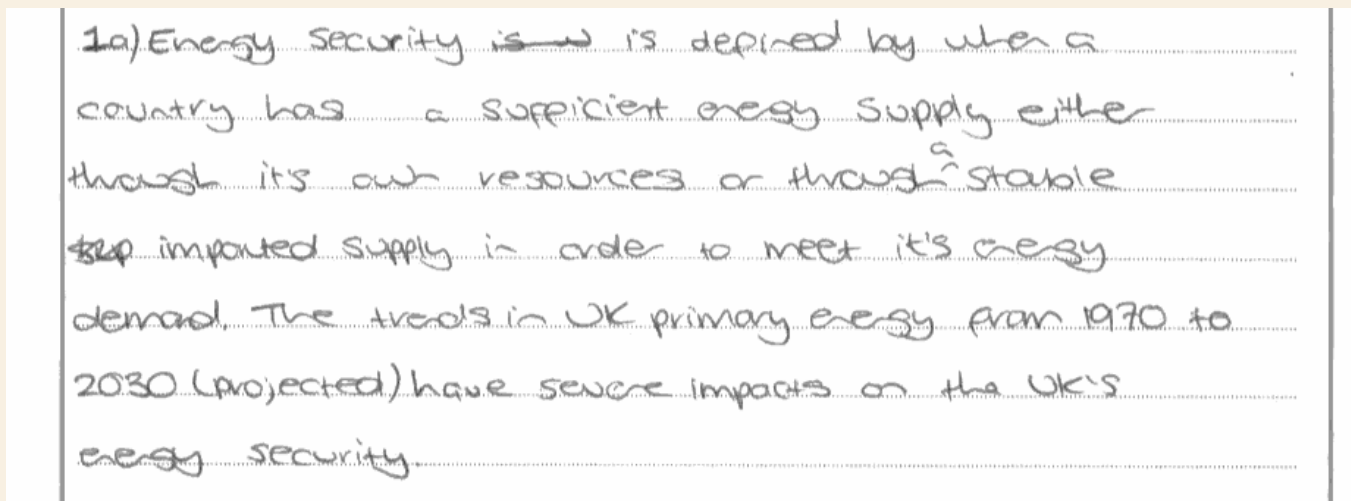 1a) Energy security is defined by when a
country has a sufficient energy supply either
through it's own resources or through a stable
imported supply in order to meet it's energy
demand. The trends in UK primary energy from 1970 to
2030 (projected) have severe impacts on the UK's
energy security.